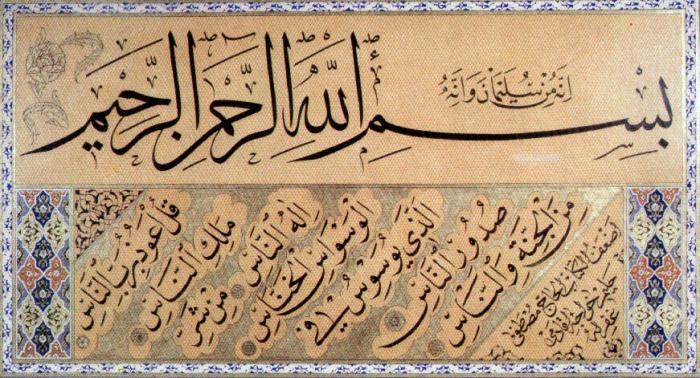 انه من سليمان وانه
بسم الله الرحمن الرحيم
قل اعوذ برب الناس
ملك الناس
اله الناس من شر
الوسواس الخناس
الذي يوسوس في
صدور الناس
من الجنة والناس
اضعف الكتاب الحاج مصطفى